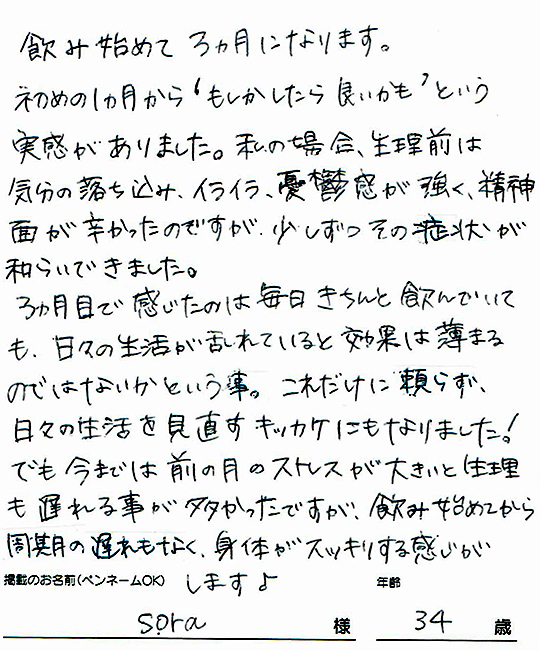 飲み始めて3ヵ月になります。
初めの1ヵ月から‘もしかしたら良いかも’という
実感がありました。私の場合、生理前は
気分の落ち込み、イライラ、憂鬱感が強く、精神
面が辛かったのですが、少しずつその症状が
和らいできました。
3ヵ月目で感じたのは毎日きちんと飲んでいて
も、日々の生活が乱れていると効果は薄まる
のではないかという事。これだけに頼らず、
日々の生活を見直すキッカケにもなりました!
でも今までは前の月のストレスが大きいと生理
も遅れる事が多かったですが、飲み始めてから
周期の遅れもなく、身体がスッキリする感じが
しますよ
掲載のお名前(ペンネームOK) 年齢
sora 様 34 歳